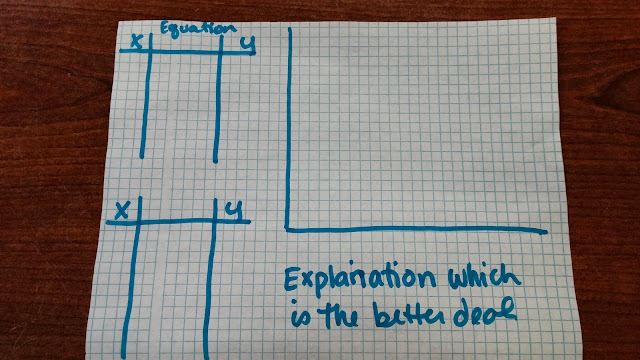 Equation
x y
x y
Explanation which
is the better deal